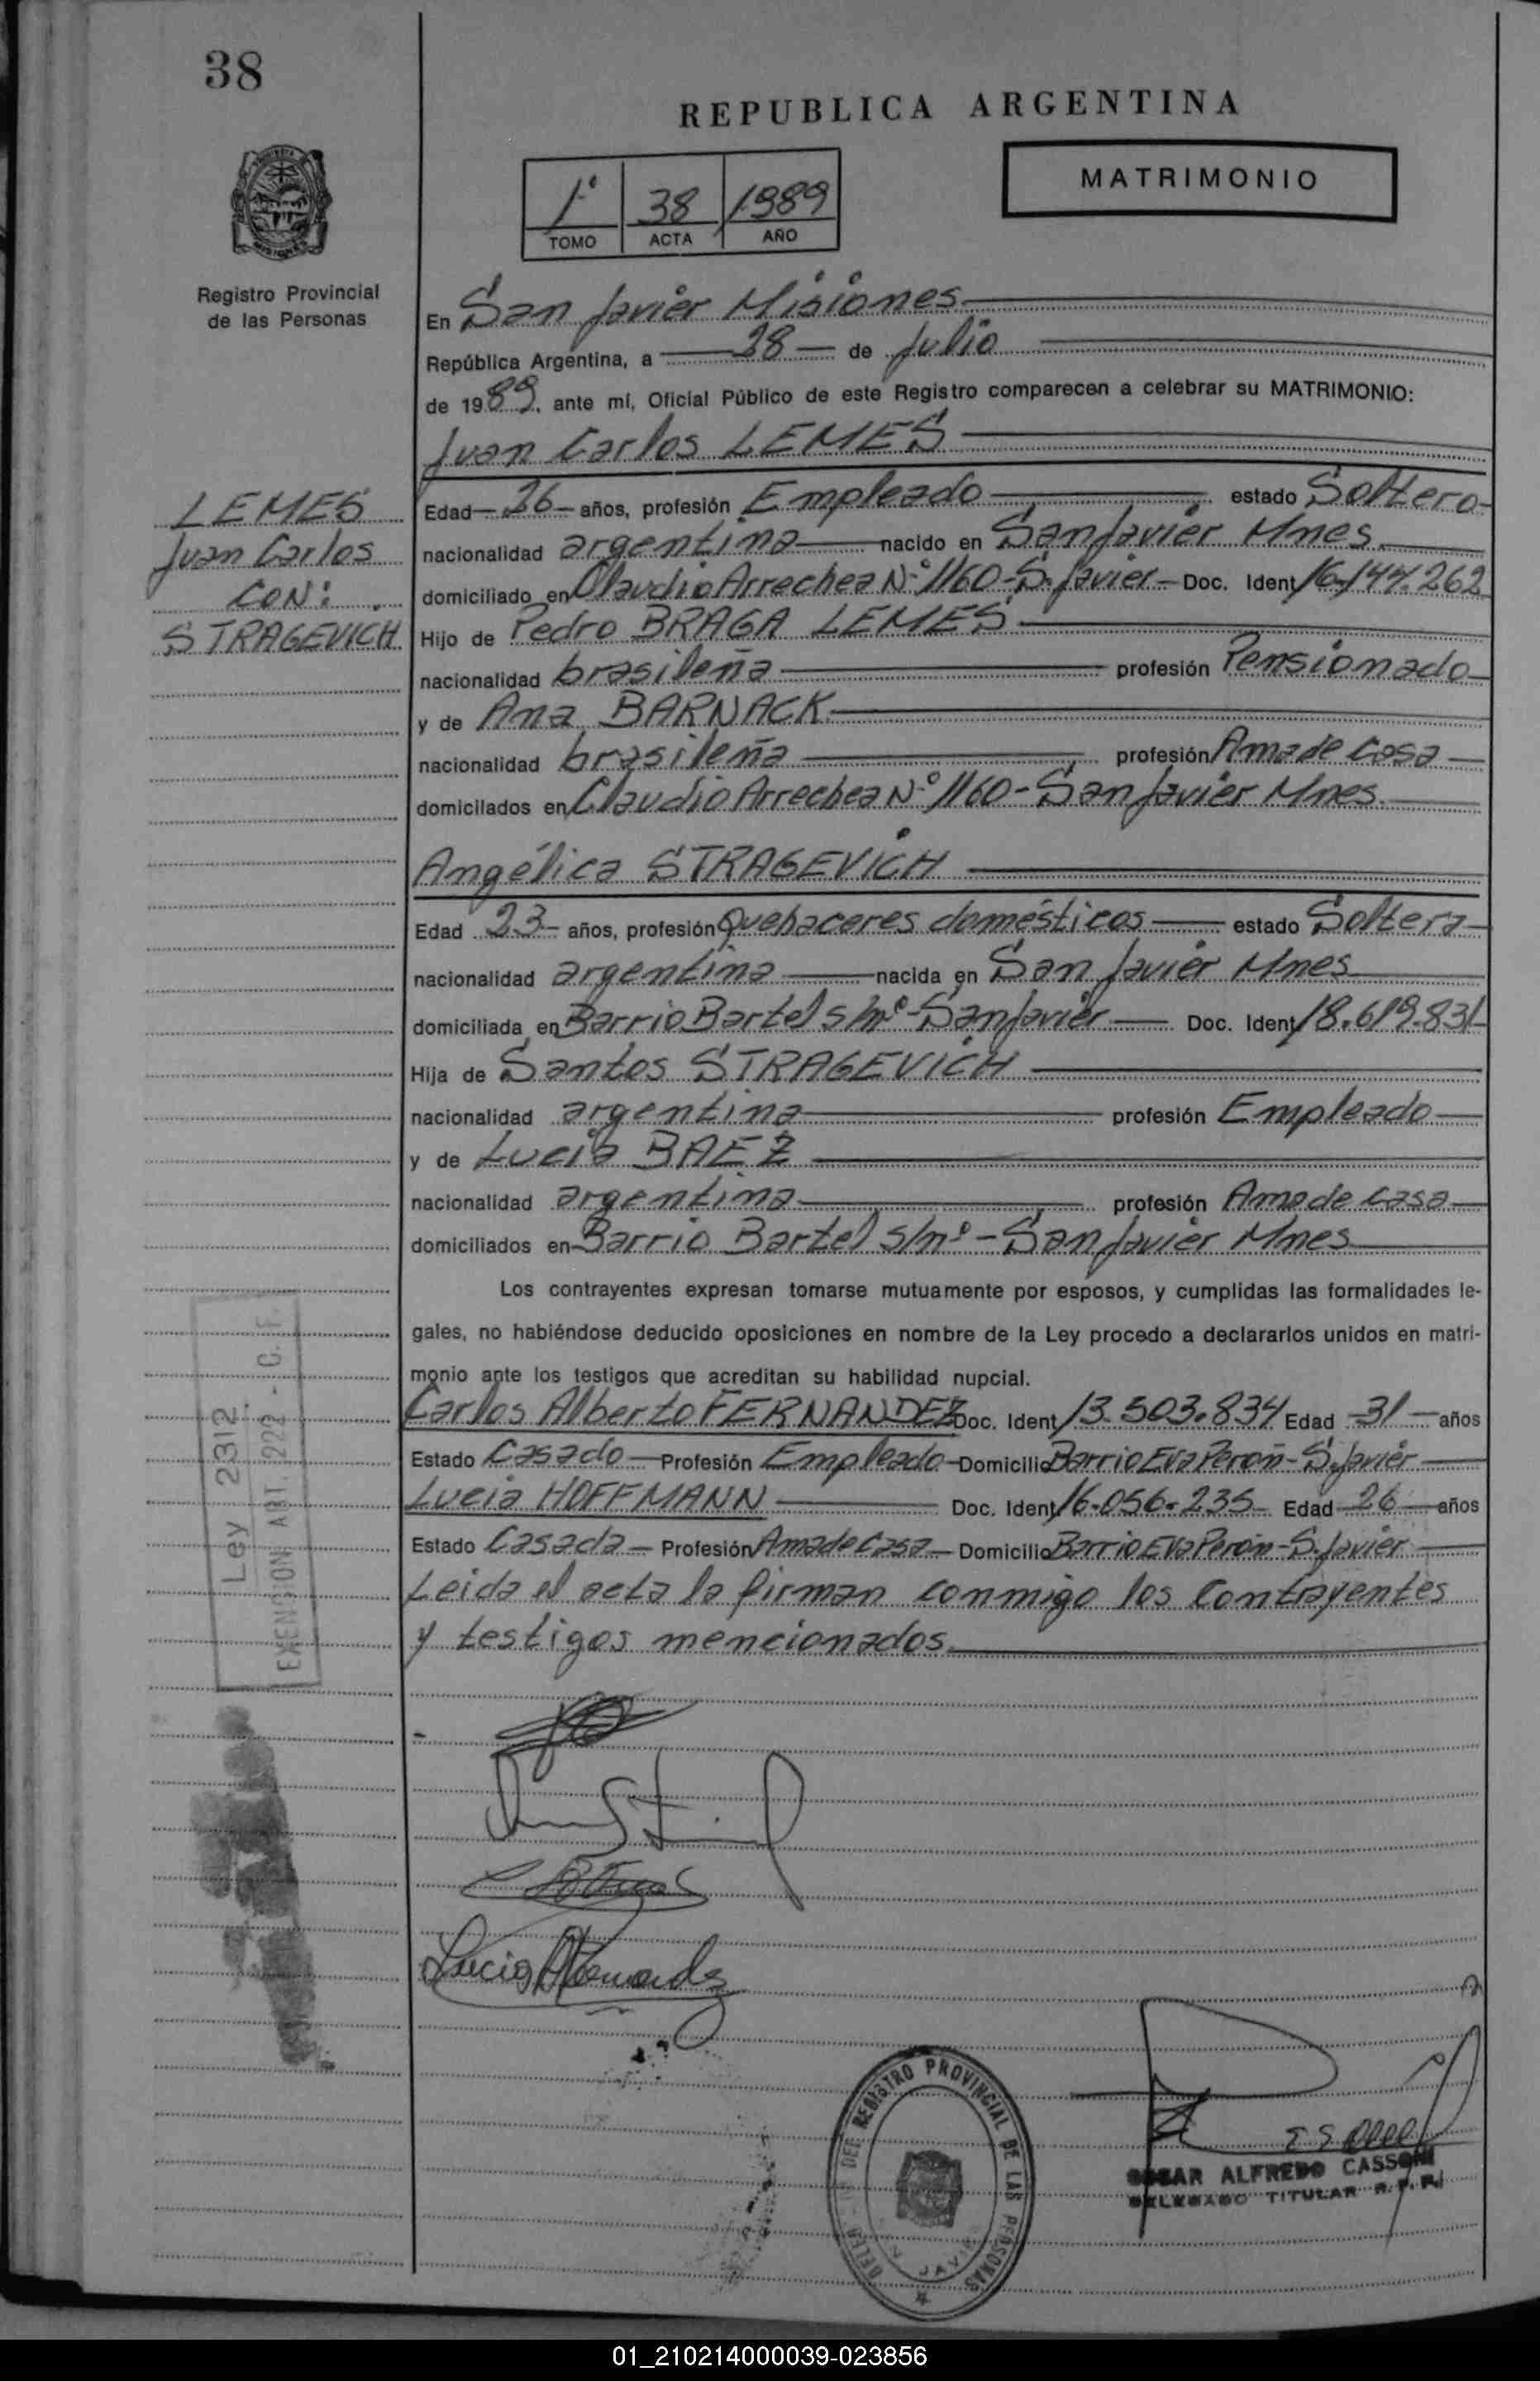 38
REPUBLICA ARGENTINA
MATRIMONIO
1º 38 1989
TOMO ACTA AÑO
Registro Provincial
de las Personas
En San Javier Misiones
República Argentina, a 28 de Julio
de 1989, ante mí, Oficial Público de este Registro comparecen a celebrar su MATRIMONIO:
Juan Carlos LEMES
LEMES
Juan Carlos
CON:
STRAGEVICH
Edad 26 años, profesión Empleado estado Soltero
nacionalidad argentina nacido en San Javier Mnes.
domiciliado en Claudio Arrechea Nº 1160-S. Javier Doc. Ident. 16.144.262
Hijo de Pedro BRAGA LEMES
nacionalidad brasileña profesión Pensionado
y de Ana BARNACK
nacionalidad brasileña profesión Ama de Casa
domicilados en Claudio Arrechea Nº 1160 - San Javier Mnes.
Angélica STRAGEVICH
Edad 23 años, profesión Quehaceres domésticos estado Soltera
nacionalidad argentina nacida en San Javier Mnes
domiciliada en Barrio Bartel s/nº - San Javier Doc. Ident. 18.619.831
Hija de Santos STRAGEVICH
nacionalidad argentina profesión Empleado
y de Lucia BAEZ
nacionalidad argentina profesión Ama de casa
domiciliados en Barrio Bartel s/nº - San Javier Mnes
Los contrayentes expresan tomarse mutuamente por esposos, y cumplidas las formalidades le-
gales, no habiéndose deducido oposiciones en nombre de la Ley procedo a declararlos unidos en matri-
monio ante los testigos que acreditan su habilidad nupcial.
Carlos Alberto FERNANDEZ Doc. Ident. 13.503.834 Edad 31 años
Estado Casado Profesión Empleado Domicilio Barrio Eva Perón - S. Javier
Lucia HOFFMANN Doc. Ident. 16.056.235 Edad 26 años
Estado Casada Profesión Ama de Casa Domicilio Barrio Eva Perón - S. Javier
Leida el acta la firman conmigo los contrayentes
y testigos mencionados.
Ley 2312
EXENCION ART. 222 - C. F.
REGISTRO PROVINCIAL DE LAS PERSONAS
ALFREDO CASSONI
DELEGADO TITULAR R.P.P.
01_210214000039-023856